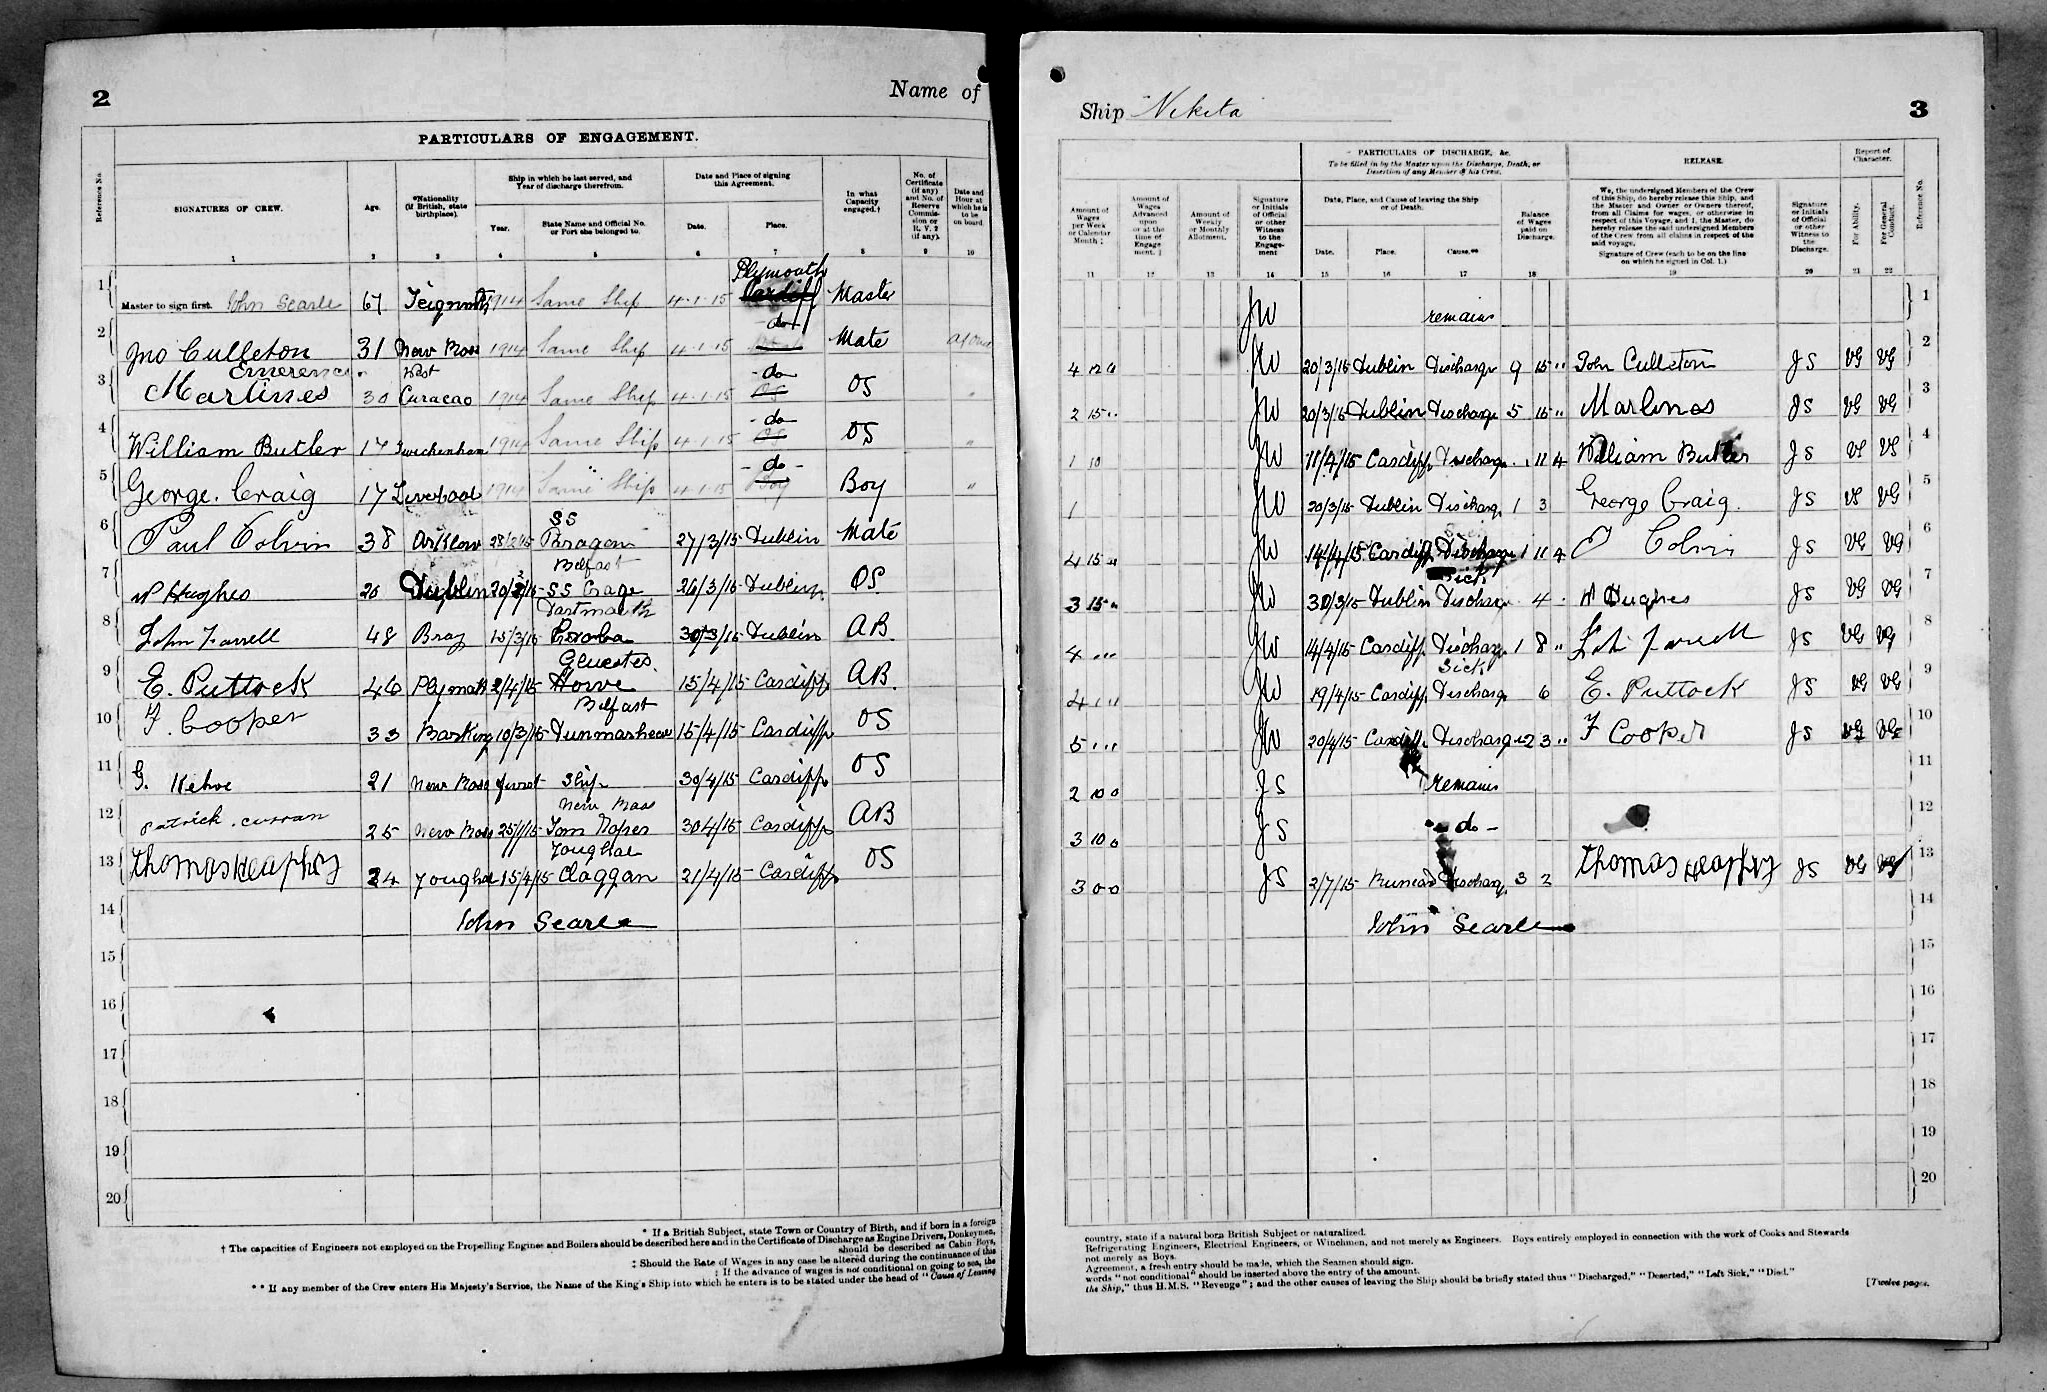 2
Name of
PARTICULARS OF ENGAGEMENT.
Reference No.
SIGNATURES OF CREW.
Age.
*Nationality (if British, state birthplace).
Ship in which he last served, and Year of discharge therefrom.
Year.
State Name and Official No. or Port she belonged to.
Date and Place of signing this Agreement.
Date.
Place.
In what Capacity engaged.†
No. of Certificate (if any) and No. of Reserve Commission or R. V. 2 (if any).
Date and Hour at which he is to be on board.
1 2 3 4 5 6 7 8 9 10
Plymouth
1 Master to sign first. John Searle 67 Teignmth 1914 Same Ship 4-1-15 Cardiff Master
2 Jno Culleton 31 New Ross 1914 Same Ship 4-1-15 -do- Mate
Emerencia West
3 Martines 30 Curacao 1914 Same Ship 4-1-15 -do- OS "
4 William Butler 17 Twickenham 1914 Same Ship 4-1-15 -do- OS "
5 George. Craig 17 Liverpool 1914 Same Ship 4-1-15 -do- Boy "
SS
6 Paul Colvin 38 Arklow Paragon 27/3/15 Dublin Mate
Belfast
7 W Hughes 20 Dublin SS 26/3/15 Dublin OS
Dartmouth
8 John Farrell 48 Bray 15/3/15 30/3/15 Dublin AB
9 E. Puttock 46 Plymoth 2/4/15 Howe 15/4/15 Cardiff AB
Belfast
10 F. Cooper 33 Barking 10/3/15 15/4/15 Cardiff OS
11 G. Kehoe 21 New Ross first Ship 30/4/15 Cardiff OS
New Ross
12 Patrick. curran 25 New Ross 25/1/15 Tom Roper 30 4/15 Cardiff AB
Youghal
13 thomas Heaphy 24 Youghal 15/4/15 Claggan 21/4/15 Cardiff OS
14 John Searle
15
16
17
18
19
20
* If a British Subject, state Town or Country of Birth, and if born in a foreign
† The capacities of Engineers not employed on the Propelling Engines and Boilers should be described here and in the Certificate of Discharge as Engine Drivers, Donkeymen,
should be described as Cabin Boys,
‡ Should the Rate of Wages in any case be altered during the continuance of this
‡ If the advance of wages is not conditional on going to sea, the
** If any member of the Crew enters His Majesty's Service, the Name of the King's Ship into which he enters is to be stated under the head of "Causes of Leaving
Ship Nikita
3
Amount of Wages per Week or Calendar Month ‡
Amount of Wages Advanced upon or at the time of Engagement. ‡
Amount of Weekly or Monthly Allotment.
Signature or Initials of Official or other Witness to the Engagement
PARTICULARS OF DISCHARGE, &c.
To be filled in by the Master upon the Discharge, Death, or Desertion of any Member of his Crew.
Date, Place, and Cause of leaving the Ship or of Death.
Date.
Place.
Cause.**
Balance of Wages paid on Discharge.
RELEASE.
We, the undersigned Members of the Crew of this Ship, do hereby release this Ship, and the Master and Owner or Owners thereof, from all Claims for wages, or otherwise in respect of this Voyage, and I, the Master, do hereby release the said undersigned Members of the Crew from all claims in respect of the said voyage.
Signature of Crew (each to be on the line on which he signed in Col. 1.)
Signature or Initials of Official or other Witness to the Discharge.
Report of Character.
For Ability.
For General Conduct.
Reference No.
11 12 13 14 15 16 17 18 19 20 21 22
JW remains 1
4 12 6 JW 20/3/15 Dublin Discharge 9 15 " John Culleton JS VG VG 2
2 15 " JW 20/3/15 Dublin Discharge 5 15 " Martines JS VG VG 3
1 10 JW 11/4/15 Cardiff Discharge . 11 4 William Butler JS VG VG 4
1 JW 20/3/15 Dublin Discharge 1 3 George Craig. JS VG VG 5
4 15 " JW 14/4/15 Cardiff Discharge 1 11 4 P Colvin JS VG VG 6
Sick
3 15 " JW 30/3/15 Dublin Discharge 4 . W Hughes JS VG VG 7
4 " " JW 14/4/15 Cardiff Discharge 1 8 " John farrell JS VG VG 8
Sick
4 " " JW 19/4/15 Cardiff Discharge 6 E. Puttock JS VG VG 9
5 " " JW 20/4/15 Cardiff Discharge 2 3 " F Cooper JS VG VG 10
2 10 0 JS remains 11
3 10 0 JS -do- 12
3 0 0 JS 2/7/15 Discharge 3 2 thomas Heaphy JS VG VG 13
John Searle 14
15
16
17
18
19
20
country, state if a natural born British Subject or naturalized.
Refrigerating Engineers, Electrical Engineers, or Winchmen, and not merely as Engineers. Boys entirely employed in connection with the work of Cooks and Stewards
not merely as Boys.
Agreement, a fresh entry should be made, which the Seamen should sign.
words "not conditional" should be inserted above the entry of the amount.
the Ship," thus H.M.S. "Revenge"; and the other causes of leaving the Ship should be briefly stated thus "Discharged," "Deserted," "Left Sick," "Died."
[Twelve pages.